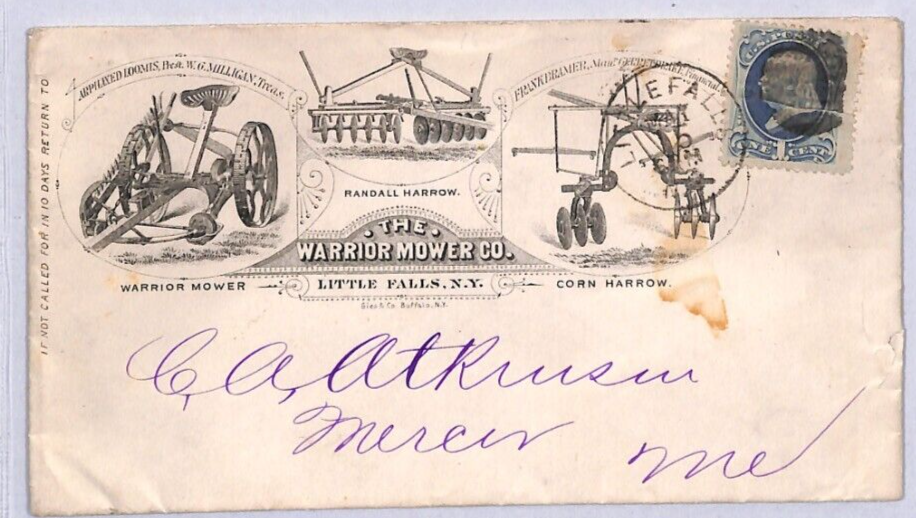 IF NOT CALLED FOR IN 10 DAYS RETURN TO
ARPHAXED LOOMIS, Prest. W. G. MILLIGAN, Treas.
FRANK CRAMER,
WARRIOR MOWER
RANDALL HARROW.
CORN HARROW.
THE
WARRIOR MOWER CO.
LITTLE FALLS, N.Y.
Gies & Co. Buffalo, N.Y.
LITTLE FALLS
ONE CENT
C. A. Atkinson
Mercer
Me